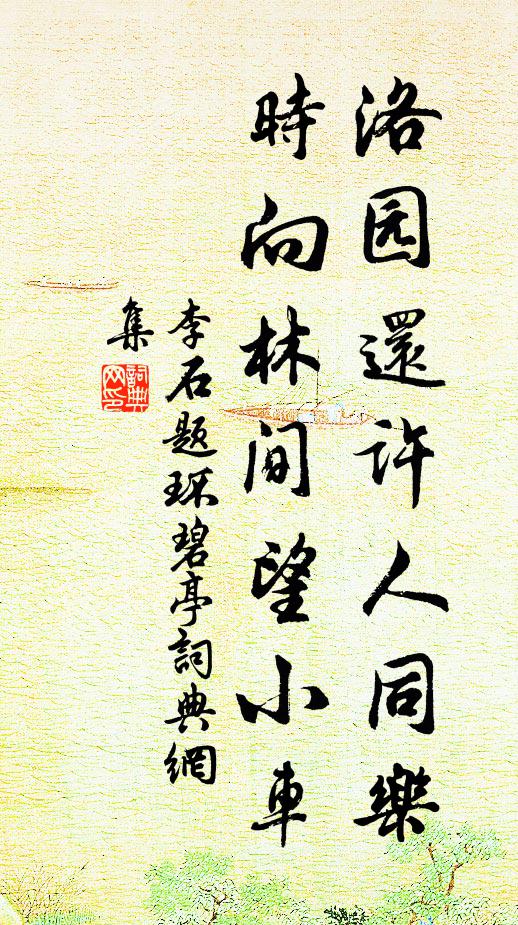 洛园還許人同樂
時向林間望小車
李石題环碧亭詞典網
集
詞典
网印